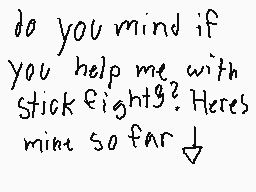 do you mind if
you help me with
stick fights? Heres
mine so far